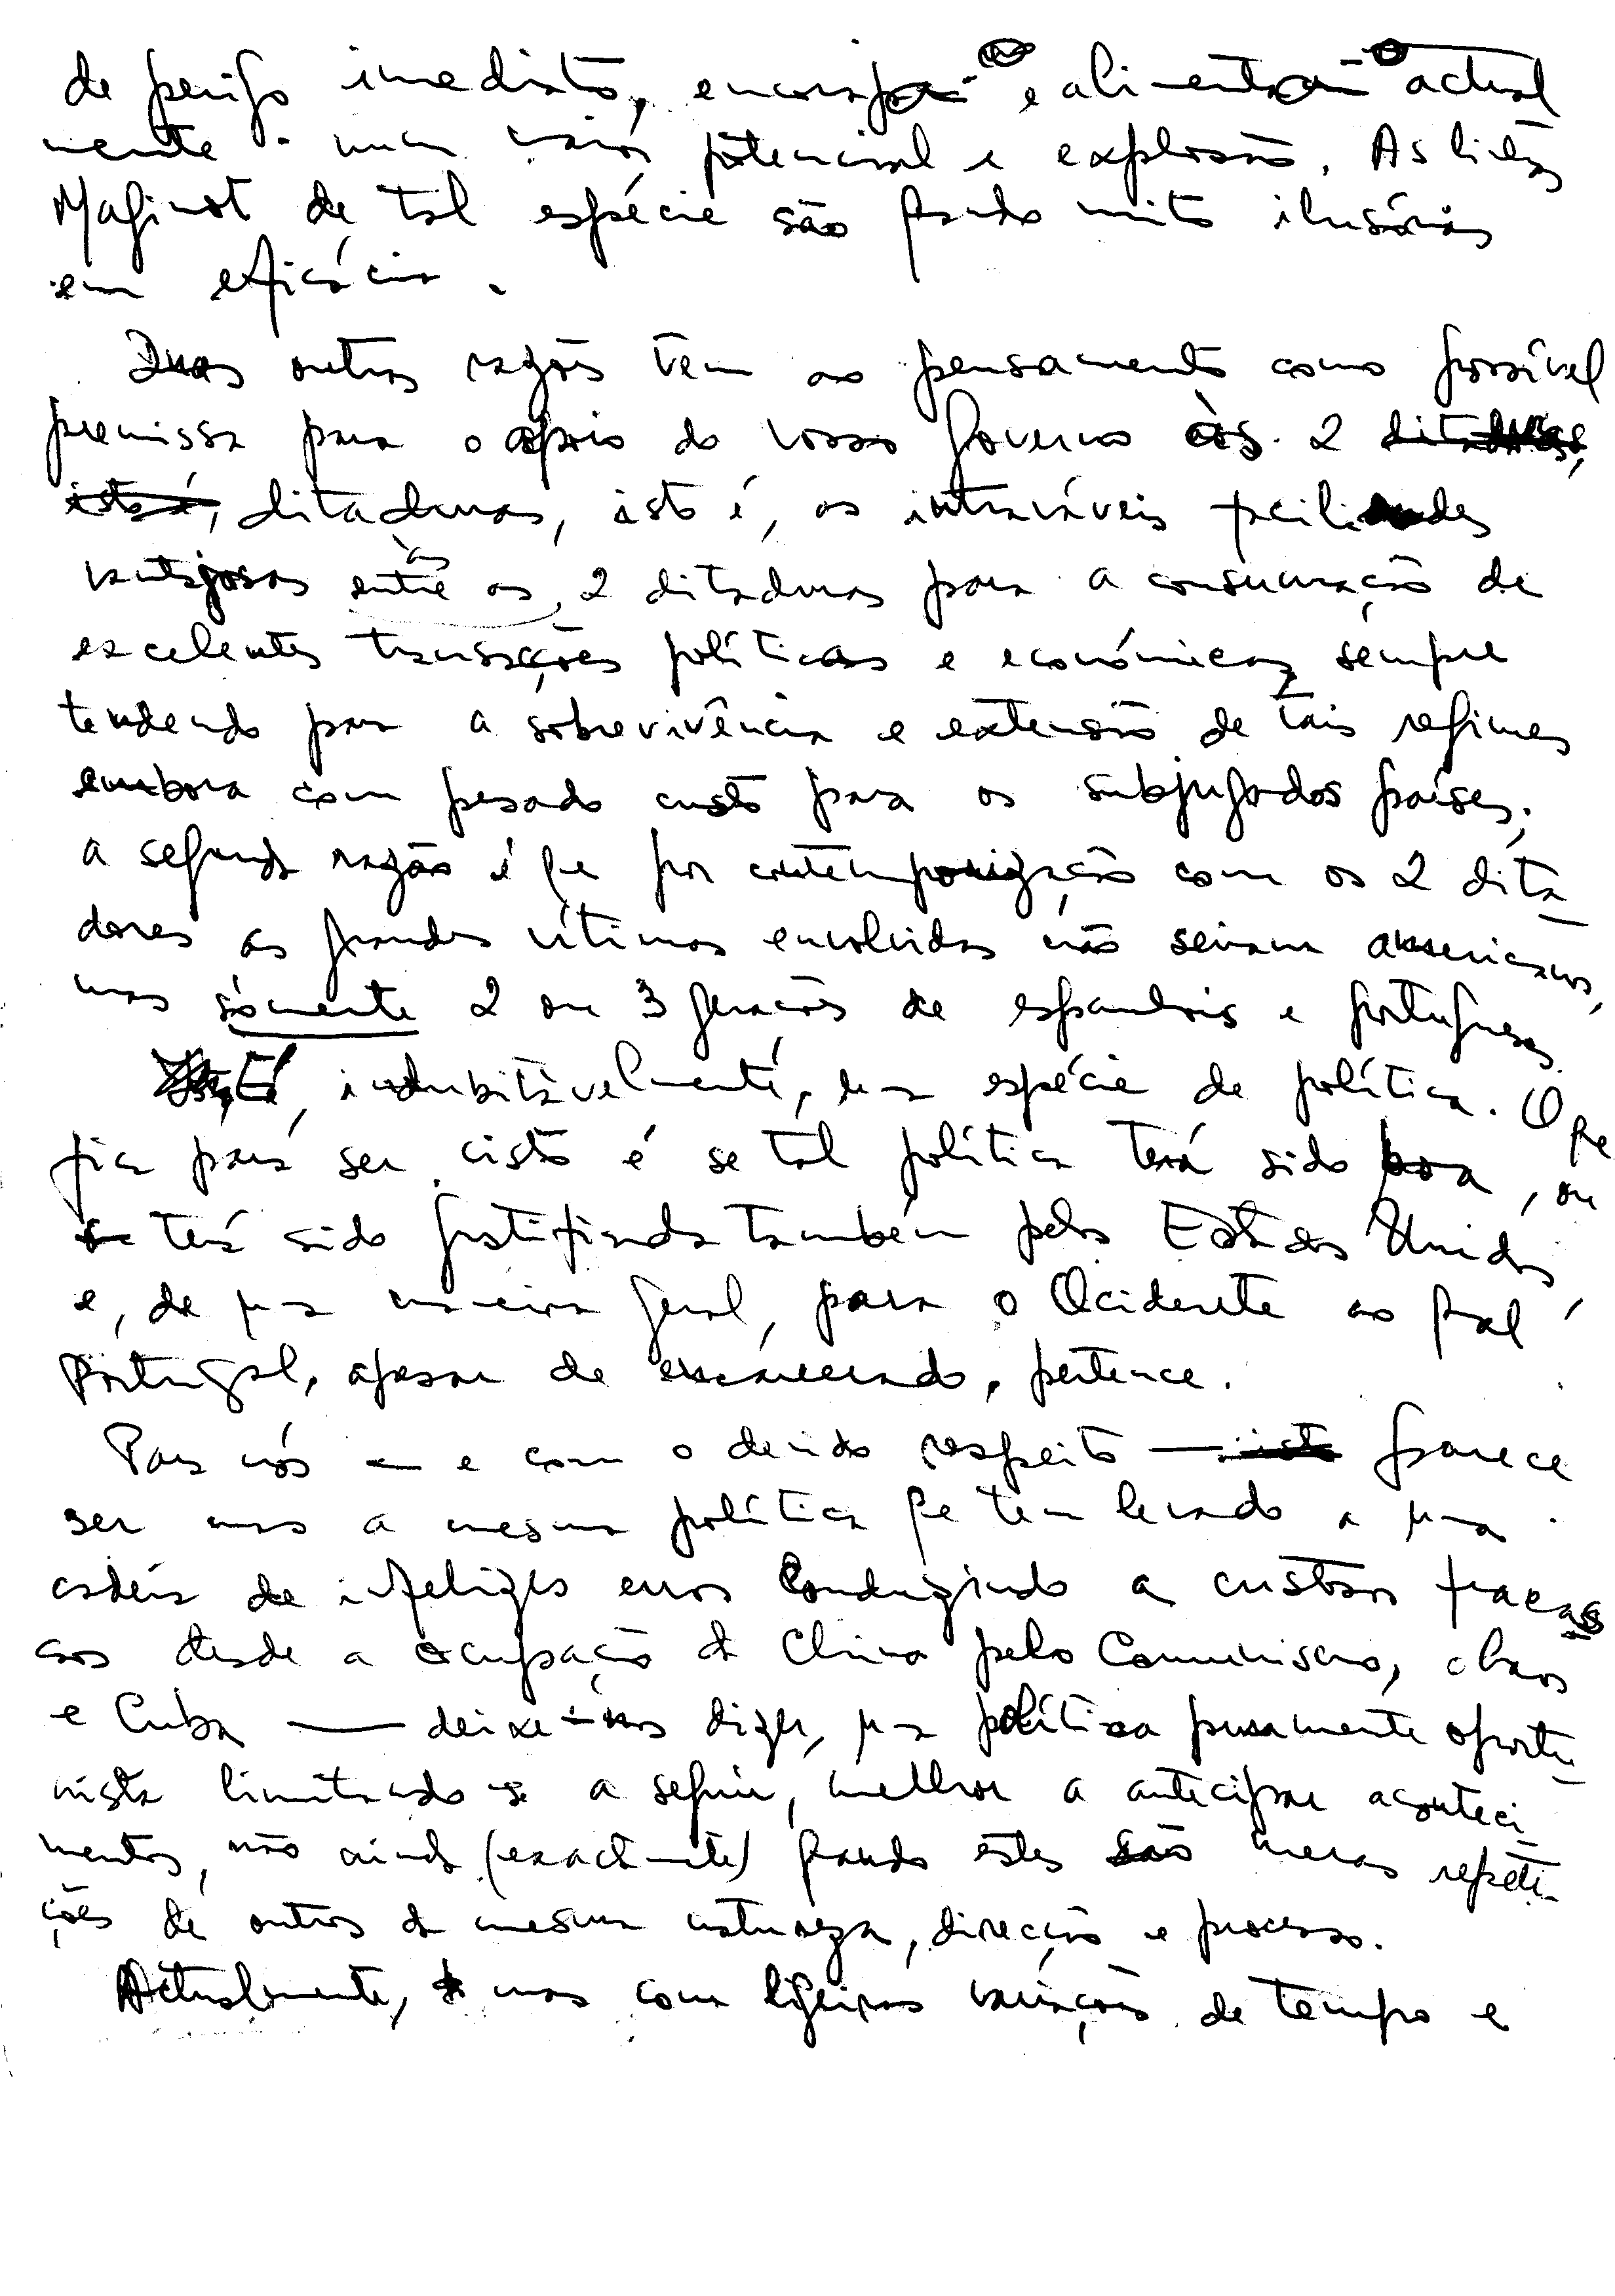 de perigo imediato, encoraja e alimenta actual
mente um maior potencial e explosão. As linhas
Maginot de tal espécie são quando muito ilusórias
em eficácia.
Duas outras razões vêm ao pensamento como possível
premissa para o apoio do vosso Governo às 2 ditaduras,
isto é, ditaduras, isto é, as facilidades
vantajosas entre as às 2 ditaduras para a consumação de
excelentes transacções políticas e económicas sempre
tendendo para a sobrevivência e extensão de tais regimes
embora com pesado custo para os subjugados países;
a segunda razão é que por contemporização com os 2 dita
dores as grandes vítimas envolvidas não seriam americanos,
mas sòmente 2 ou 3 gerações de espanhois e portugueses.
É, indubitàvelmente, uma espécie de política. O que
fica para ser visto é se tal política terá sido boa, ou
se terá sido justificada também pelos Estados Unidos
e, de uma maneira geral, para o Ocidente ao qual
Portugal, apesar de encarcerado, pertence.
Para nós — e com o devido respeito — isto parece
ser mas a mesma política que tem levado a uma
cadeia de infelizes erros conduzindo a custosos fracas
sos desde a ocupação da China pelo Comunismo, Laos
e Cuba — deixe-nos dizer, uma política puramente oportu
nista limitando-se a seguir, melhor a antecipar aconteci
mentos, não ainda (exactamente) quando estes são meras repeti-
ções de outros da mesma natureza, direcção e processo.
Actualmente, mas com ligeiras variações de tempo e